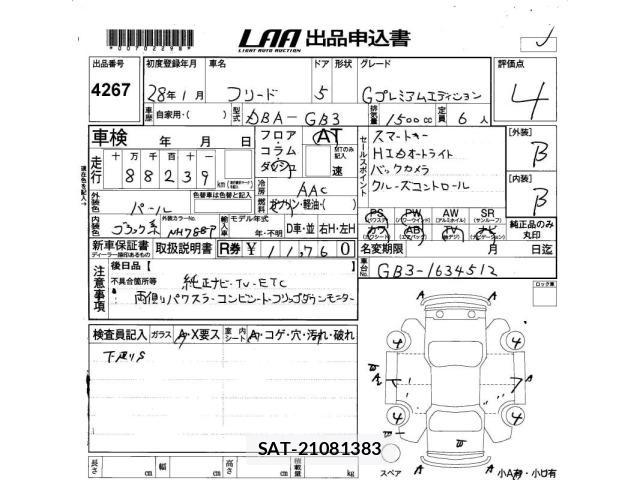 00702298
LAA 出品申込書
LIGHT AUTO AUCTION
出品番号 初度登録年月 車名 ドア 形状 グレード 評価点
4267 28年1月 フリード 5 Gプレミアムエディション 4
車歴 自家用・( ) 型式 DBA-GB3 排気量 1500cc 定員 6人
車検 年 月 日 フロア コラム ダッシュ AT MTのみ記入 速
セールスポイント スマートキー
HIDオートライト
バックカメラ
クルーズコントロール
[外装] B
[内装] B
走行 十万 万 千 百 十 一
1 8 8 2 3 9 km
外装色 パール 色替車は色替と記入
冷房 AAC
燃料 ガソリン・軽油・( )
内装色 ブラック系 外装カラーNo. NH788P 輸入車 モデル年式 年・不明 D車・並 右H・左H
PS AW SR
カワ AB TV ナビ
純正品のみ丸印
新車保証書 取扱説明書 R券 ¥11,760
ディーラー操作あるもの
名変期限 月 日迄
車台No. GB3-1634512
注意事項 後日品【
不具合箇所等 純正ナビ・TV・ETC
両側パワスラ・コンビシート・フリップダウンモニター
ロック車
検査員記入 ガラス A・X要ス 室内シート A・コゲ・穴・汚れ・破れ
下廻りS
A A
4 4
A A
4 4
A A
長さ cm 幅 cm 高さ cm 積載量 kg
スペア
小A有・小U有
SAT-21081383